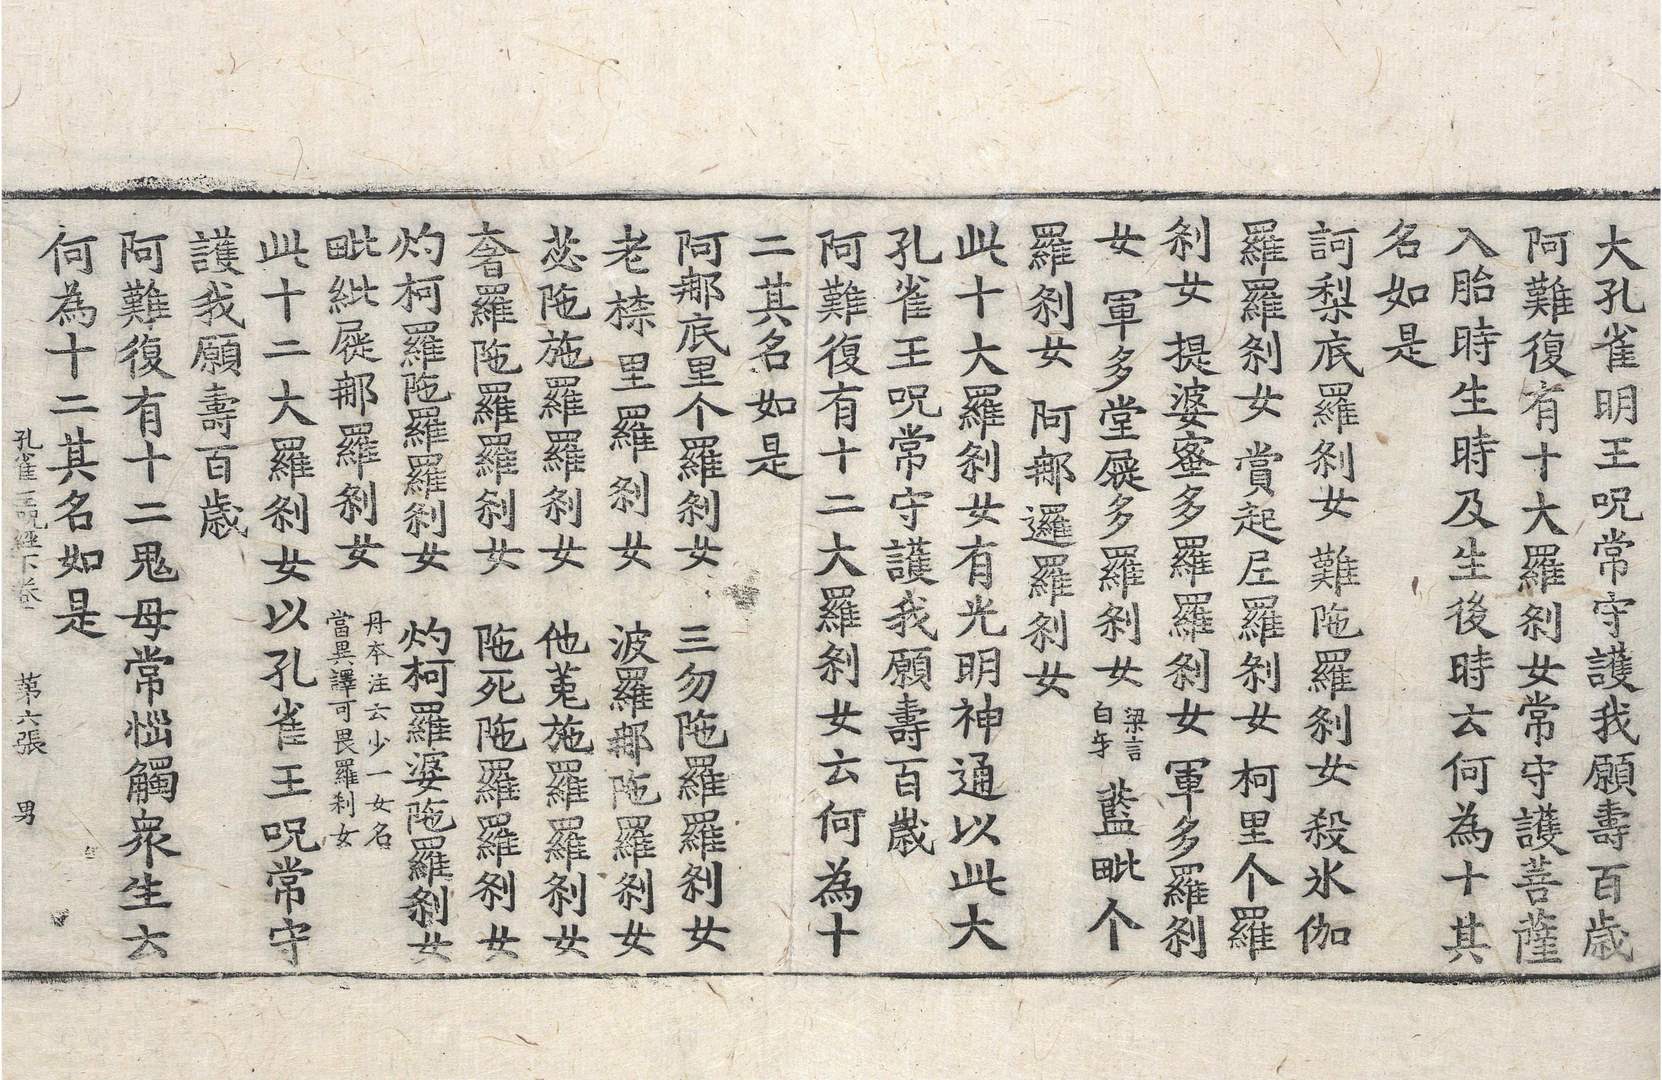 大孔雀明王呪常守護我願壽百歲
阿難復有十大羅剎女常守護菩薩
入胎時生時及生後時云何為十其
名如是
訶梨底羅剎女 難陁羅剎女 殺氷伽
羅羅剎女 賞起𡰱羅剎女 柯里个羅
剎女 提婆蜜多羅羅剎女 軍多羅剎
女 軍多堂屣多羅剎女 梁言白牙 藍毗个
羅剎女 阿那邏羅剎女
此十大羅剎女有光明神通以此大
孔雀王呪常守護我願壽百歲
阿難復有十二大羅剎女云何為十
二其名如是
阿那底里个羅剎女 三勿陁羅羅剎女
老㮏里羅剎女 波羅那陁羅剎女
苾陁施羅羅剎女 他㝹施羅羅剎女
奢羅陁羅羅剎女 陁死陁羅羅剎女
灼柯羅陁羅羅剎女 灼柯羅婆陁羅剎女
毗紕屣那羅剎女 丹本注云少一女名當異譯可畏羅利女
此十二大羅剎女以孔雀王呪常守
護我願壽百歲
阿難復有十二鬼母常惱觸衆生云
孔雀王呪經下卷 第六張 男
何為十二其名如是